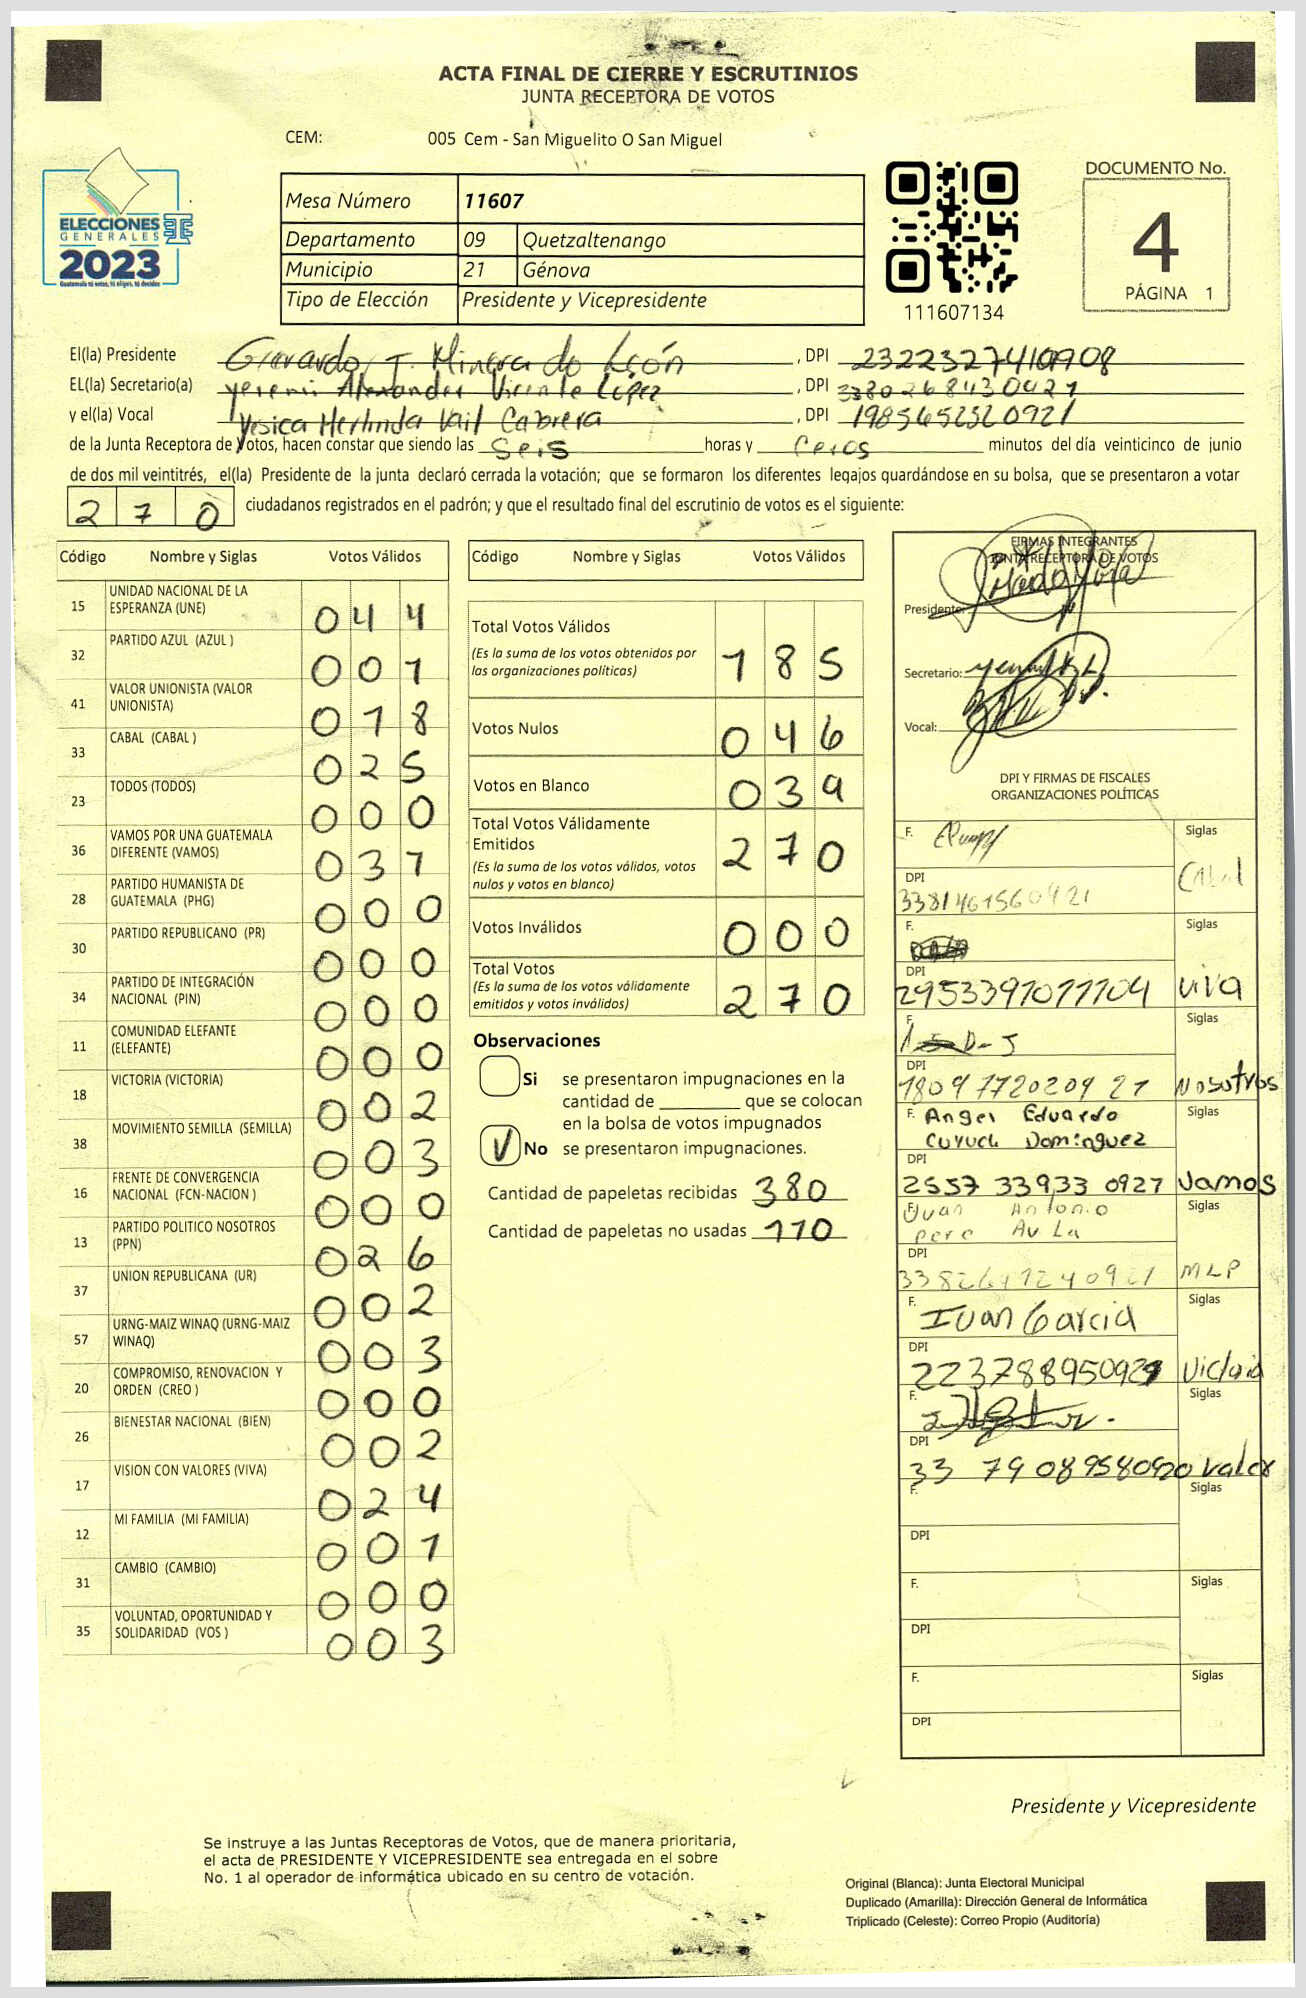 ACTA FINAL DE CIERRE Y ESCRUTINIOS
JUNTA RECEPTORA DE VOTOS
CEM: 005 Cem - San Miguelito O San Miguel
ELECCIONES
GENERALES
2023
Guatemala tú votas, tú eliges, tú decides
Mesa Número 11607
Departamento 09 Quetzaltenango
Municipio 21 Génova
Tipo de Elección Presidente y Vicepresidente
111607134
DOCUMENTO No.
4
PÁGINA 1
El(la) Presidente Gerardo T. Minera de León, DPI 2322327410908
EL(la) Secretario(a) Yeremi Alexander Vicente López, DPI 3380268430921
y el(la) Vocal Yesica Herlinda Vail Cabrera, DPI 1985652520921
de la Junta Receptora de Votos, hacen constar que siendo las Seis horas y Ceros minutos del día veinticinco de junio
de dos mil veintitrés, el(la) Presidente de la junta declaró cerrada la votación; que se formaron los diferentes legajos guardándose en su bolsa, que se presentaron a votar
270 ciudadanos registrados en el padrón; y que el resultado final del escrutinio de votos es el siguiente:
Código Nombre y Siglas Votos Válidos
15 UNIDAD NACIONAL DE LA
ESPERANZA (UNE) 044
32 PARTIDO AZUL (AZUL ) 001
41 VALOR UNIONISTA (VALOR
UNIONISTA) 018
33 CABAL (CABAL ) 025
23 TODOS (TODOS) 000
36 VAMOS POR UNA GUATEMALA
DIFERENTE (VAMOS) 037
28 PARTIDO HUMANISTA DE
GUATEMALA (PHG) 000
30 PARTIDO REPUBLICANO (PR) 000
34 PARTIDO DE INTEGRACIÓN
NACIONAL (PIN) 000
11 COMUNIDAD ELEFANTE
(ELEFANTE) 000
18 VICTORIA (VICTORIA) 002
38 MOVIMIENTO SEMILLA (SEMILLA) 003
16 FRENTE DE CONVERGENCIA
NACIONAL (FCN-NACION ) 000
13 PARTIDO POLITICO NOSOTROS
(PPN) 026
37 UNION REPUBLICANA (UR) 002
57 URNG-MAIZ WINAQ (URNG-MAIZ
WINAQ) 003
20 COMPROMISO, RENOVACION Y
ORDEN (CREO ) 000
26 BIENESTAR NACIONAL (BIEN) 002
17 VISION CON VALORES (VIVA) 024
12 MI FAMILIA (MI FAMILIA) 001
31 CAMBIO (CAMBIO) 000
35 VOLUNTAD, OPORTUNIDAD Y
SOLIDARIDAD (VOS ) 003
Código Nombre y Siglas Votos Válidos
Total Votos Válidos
(Es la suma de los votos obtenidos por
las organizaciones políticas) 185
Votos Nulos 046
Votos en Blanco 039
Total Votos Válidamente
Emitidos
(Es la suma de los votos válidos, votos
nulos y votos en blanco) 270
Votos Inválidos 000
Total Votos
(Es la suma de los votos válidamente
emitidos y votos inválidos) 270
Observaciones
Si se presentaron impugnaciones en la
cantidad de ________ que se colocan
en la bolsa de votos impugnados
No se presentaron impugnaciones.
Cantidad de papeletas recibidas 380
Cantidad de papeletas no usadas 110
FIRMAS INTEGRANTES
JUNTA RECEPTORA DE VOTOS
Presidente:
Secretario:
Vocal:
DPI Y FIRMAS DE FISCALES
ORGANIZACIONES POLÍTICAS
F. Siglas
DPI Cabal
3381461560921
F. Siglas
DPI
2953391071104 Viva
F. Siglas
DPI
1809772020921 Nosotros
F. Angel Eduardo Siglas
Cuyuch Dominguez
DPI
2557 33933 0927 Vamos
F. Juan Antonio Siglas
DPI
MLP
F. Ivan Garcia Siglas
DPI
F. Siglas
DPI
33 79 089580920 Valor
F. Siglas
DPI
F. Siglas
DPI
F. Siglas
DPI
Presidente y Vicepresidente
Se instruye a las Juntas Receptoras de Votos, que de manera prioritaria,
el acta de PRESIDENTE Y VICEPRESIDENTE sea entregada en el sobre
No. 1 al operador de informática ubicado en su centro de votación.
Original (Blanca): Junta Electoral Municipal
Duplicado (Amarilla): Dirección General de Informática
Triplicado (Celeste): Correo Propio (Auditoría)